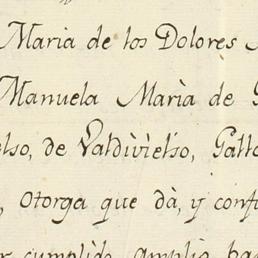 Maria de los Dolores
Manuela Marìa de
elso, de Valdivielso, Gall
, otorga que dà, y conf
cumplido amplio ba